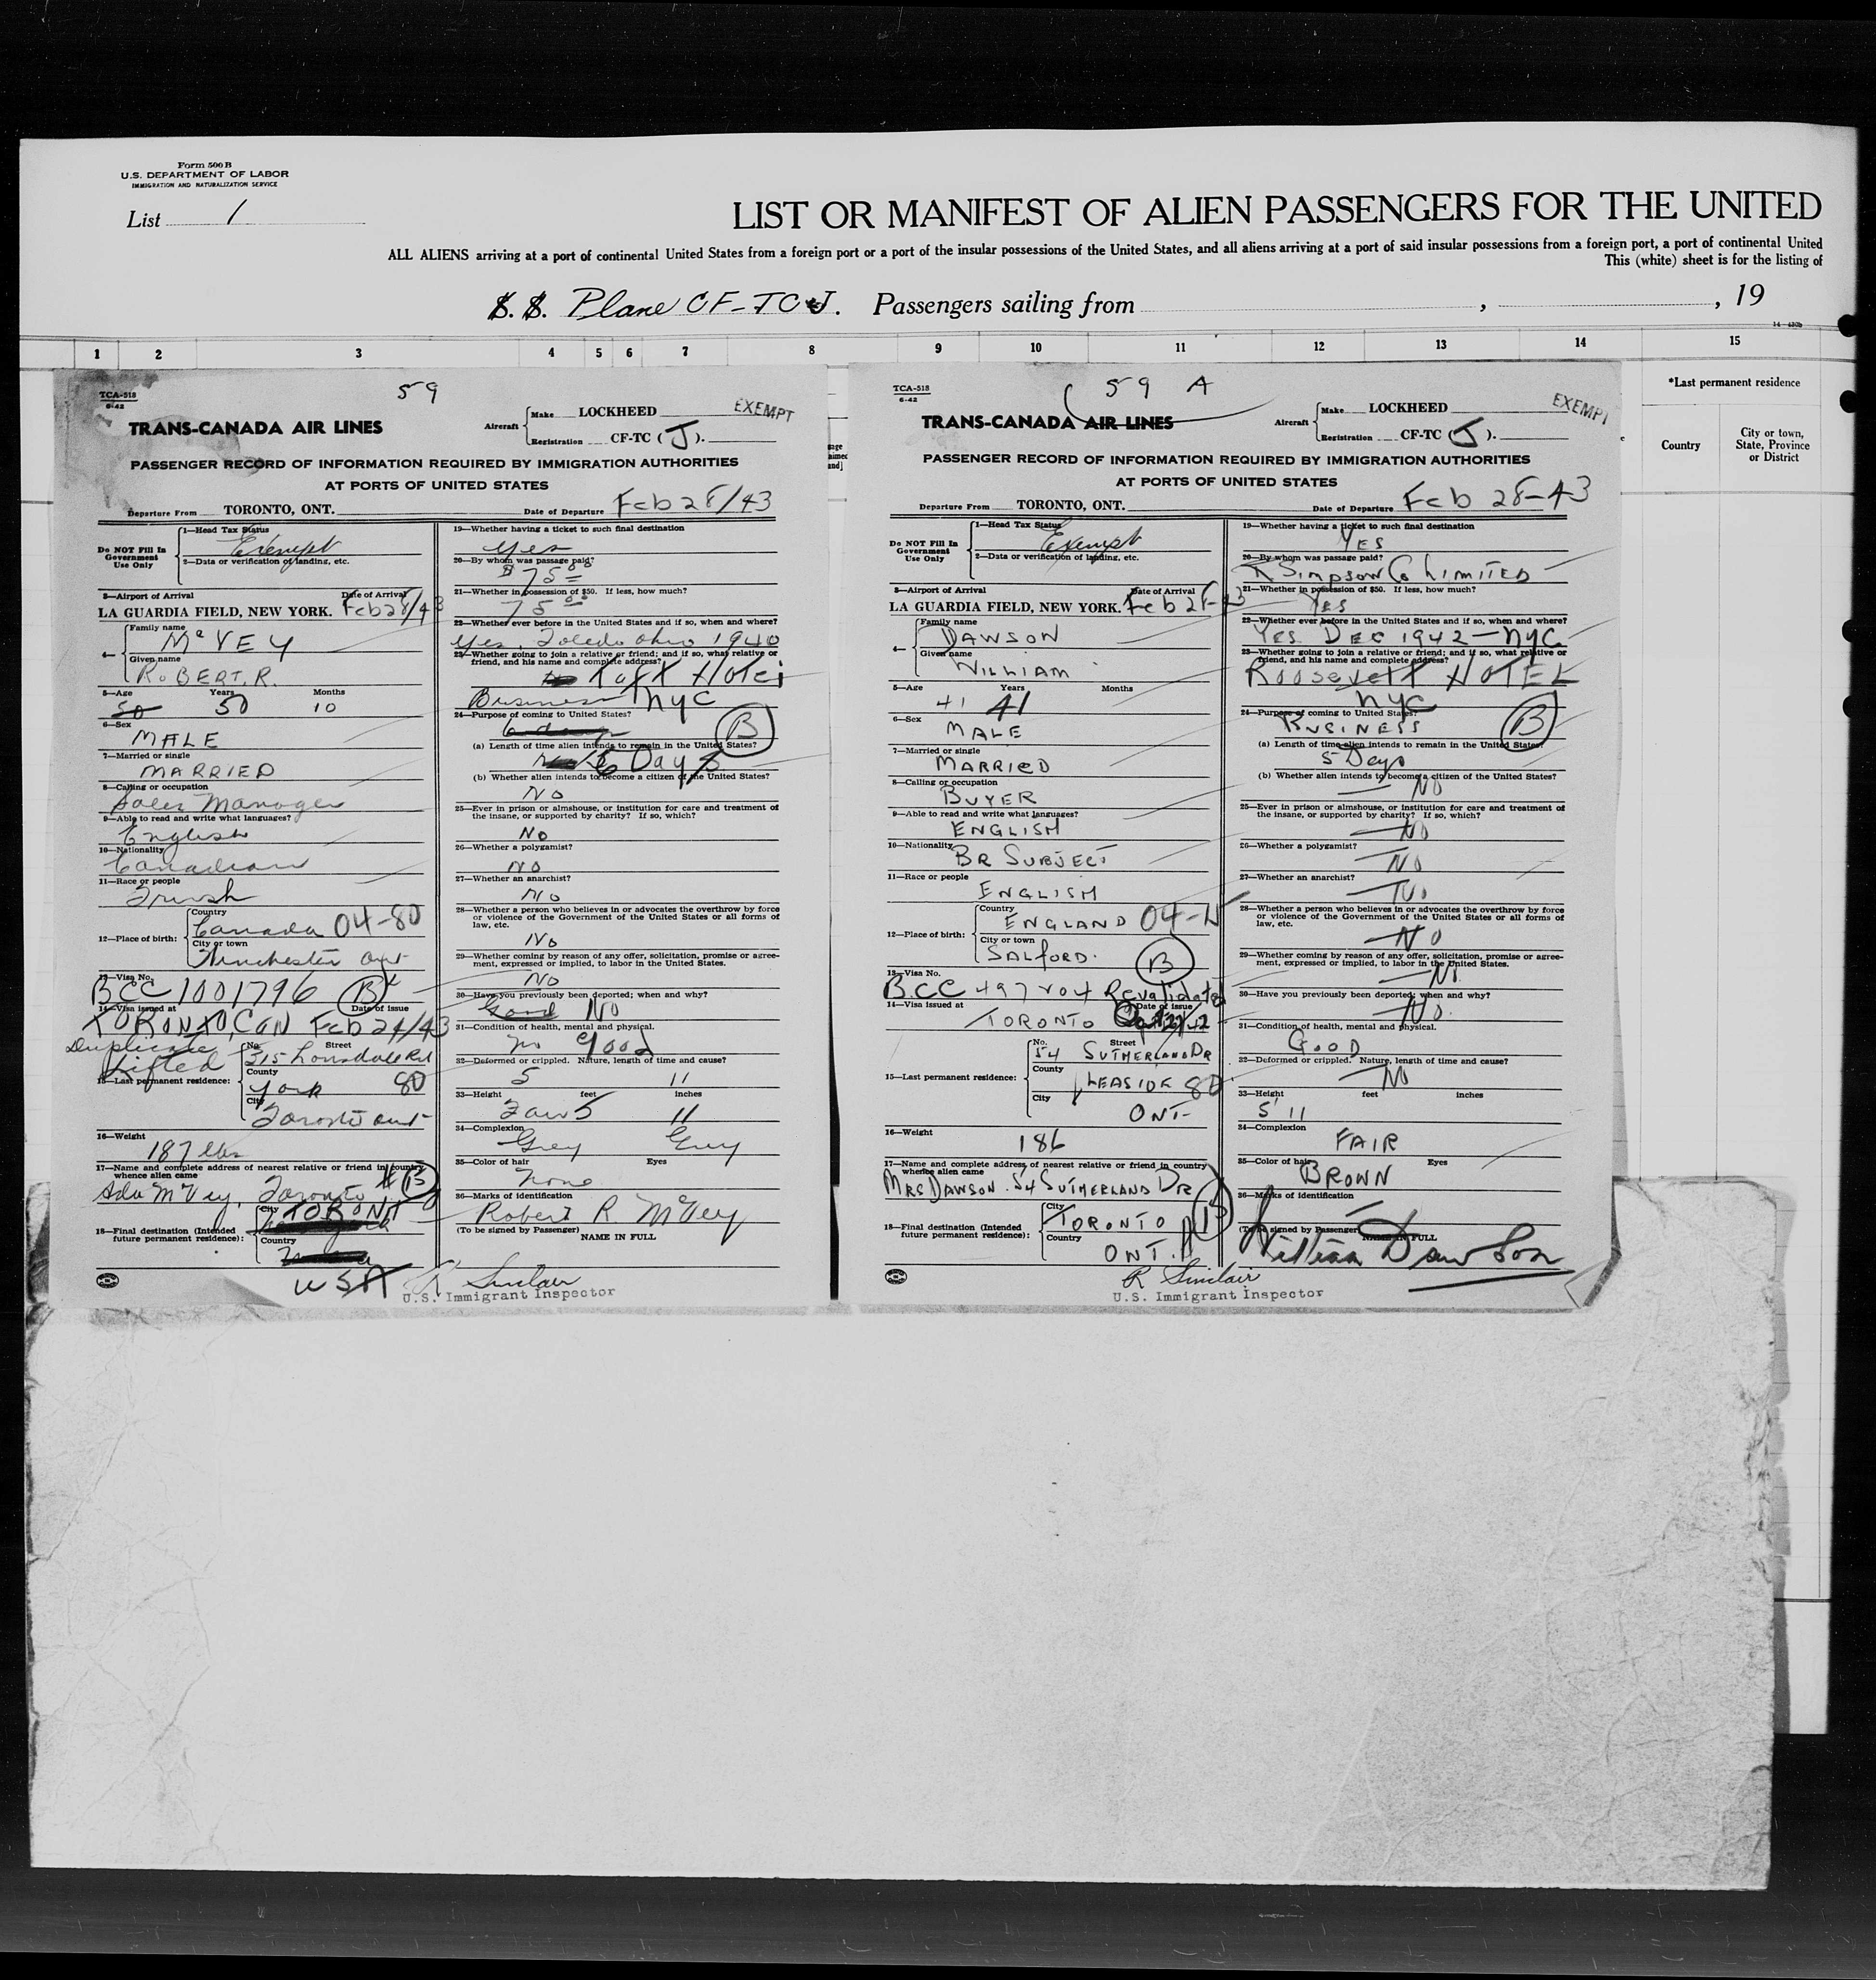 Form 500 B
U.S. DEPARTMENT OF LABOR
IMMIGRATION AND NATURALIZATION SERVICE
List 1
LIST OR MANIFEST OF ALIEN PASSENGERS FOR THE UNITED
ALL ALIENS arriving at a port of continental United States from a foreign port or a port of the insular possessions of the United States, and all aliens arriving at a port of said insular possessions from a foreign port, a port of continental United
This (white) sheet is for the listing of
S. S. Plane CF-TCJ. Passengers sailing from , , 19
1 2 3 4 5 6 7 8 9 10 11 12 13 14 15
*Last permanent residence
Country
City or town, State, Province or District
59
TCA-518
6-42
TRANS-CANADA AIR LINES
Aircraft Make LOCKHEED
Registration CF-TC ( J ).
EXEMPT
PASSENGER RECORD OF INFORMATION REQUIRED BY IMMIGRATION AUTHORITIES
AT PORTS OF UNITED STATES
Departure From TORONTO, ONT. Date of Departure Feb 28/43
Do NOT Fill In Government Use Only
1—Head Tax Status
Exempt
2—Data or verification of landing, etc.
3—Airport of Arrival Date of Arrival
LA GUARDIA FIELD, NEW YORK. Feb 28/43
4— Family name
McVEY
Given name
ROBERT. R.
5—Age Years Months
50 50 10
6—Sex
MALE
7—Married or single
MARRIED
8—Calling or occupation
Sales Manager
9—Able to read and write what languages?
English
10—Nationality
Canadian
11—Race or people
Irish
12—Place of birth: Country
Canada 04-80
City or town
Winchester Ont
13—Visa No.
BCC 1001796 B
14—Visa issued at Date of issue
TORONTO CAN Feb 24/43
Duplicate
Lifted
15—Last permanent residence: No. Street
315 Lonsdale Rd
County
York 80
City
Toronto Ont
16—Weight
187 lbs
17—Name and complete address of nearest relative or friend in country whence alien came
Ada McVey, Toronto
18—Final destination (Intended future permanent residence): City
TORONT
Country
USA
19—Whether having a ticket to such final destination
Yes
20—By whom was passage paid?
$75
21—Whether in possession of $50. If less, how much?
75
22—Whether ever before in the United States and if so, when and where?
Yes. Toledo Ohio 1940
23—Whether going to join a relative or friend; and if so, what relative or friend, and his name and complete address?
Taft Hotel
Business NYC
24—Purpose of coming to United States?
B
(a) Length of time alien intends to remain in the United States?
6 Days
(b) Whether alien intends to become a citizen of the United States?
NO
25—Ever in prison or almshouse, or institution for care and treatment of the insane, or supported by charity? If so, which?
NO
26—Whether a polygamist?
NO
27—Whether an anarchist?
NO
28—Whether a person who believes in or advocates the overthrow by force or violence of the Government of the United States or all forms of law, etc.
NO
29—Whether coming by reason of any offer, solicitation, promise or agreement, expressed or implied, to labor in the United States.
NO
30—Have you previously been deported; when and why?
Good NO
31—Condition of health, mental and physical.
no good
32—Deformed or crippled. Nature, length of time and cause?
5 11
33—Height feet inches
Fair 5 11
34—Complexion
Grey Grey
35—Color of hair Eyes
None
36—Marks of identification
Robert R. McVey
(To be signed by Passenger) NAME IN FULL
R Sinclair
U.S. Immigrant Inspector
59 A
TCA-518
6-42
TRANS-CANADA AIR LINES
Aircraft Make LOCKHEED
Registration CF-TC ( J ).
EXEMPT
PASSENGER RECORD OF INFORMATION REQUIRED BY IMMIGRATION AUTHORITIES
AT PORTS OF UNITED STATES
Departure From TORONTO, ONT. Date of Departure Feb 28-43
Do NOT Fill In Government Use Only
1—Head Tax Status
Exempt
2—Data or verification of landing, etc.
3—Airport of Arrival Date of Arrival
LA GUARDIA FIELD, NEW YORK. Feb 28-43
4— Family name
DAWSON
Given name
WILLIAM
5—Age Years Months
41 41
6—Sex
MALE
7—Married or single
MARRIED
8—Calling or occupation
BUYER
9—Able to read and write what languages?
ENGLISH
10—Nationality
BR SUBJECT
11—Race or people
ENGLISH
12—Place of birth: Country
ENGLAND 04-
City or town
SALFORD.
B
13—Visa No.
BCC 497204 Revalidated
14—Visa issued at Date of issue
TORONTO
15—Last permanent residence: No. Street
54 SUTHERLAND DR
County
LEASIDE 80
City
ONT-
16—Weight
186
17—Name and complete address of nearest relative or friend in country whence alien came
MRS DAWSON. 54 SUTHERLAND DR
18—Final destination (Intended future permanent residence): City
TORONTO
Country
ONT.
19—Whether having a ticket to such final destination
YES
20—By whom was passage paid?
R Simpson Co LIMITED
21—Whether in possession of $50. If less, how much?
YES
22—Whether ever before in the United States and if so, when and where?
YES. DEC 1942—NYC
23—Whether going to join a relative or friend; and if so, what relative or friend, and his name and complete address?
Roosevelt HOTEL
NYC
24—Purpose of coming to United States?
BUSINESS B
(a) Length of time alien intends to remain in the United States?
5 Days
(b) Whether alien intends to become a citizen of the United States?
NO
25—Ever in prison or almshouse, or institution for care and treatment of the insane, or supported by charity? If so, which?
NO
26—Whether a polygamist?
NO
27—Whether an anarchist?
NO
28—Whether a person who believes in or advocates the overthrow by force or violence of the Government of the United States or all forms of law, etc.
NO
29—Whether coming by reason of any offer, solicitation, promise or agreement, expressed or implied, to labor in the United States.
NO.
30—Have you previously been deported; when and why?
NO.
31—Condition of health, mental and physical.
GOOD
32—Deformed or crippled. Nature, length of time and cause?
NO
33—Height feet inches
5' 11
34—Complexion
FAIR
35—Color of hair Eyes
BROWN
36—Marks of identification
(To be signed by Passenger) NAME IN FULL
William Dawson
R Sinclair
U.S. Immigrant Inspector